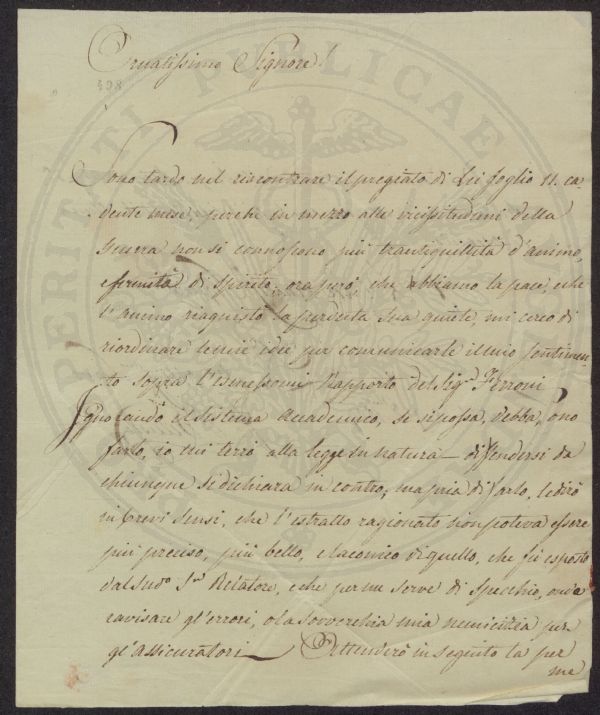 Ornatissimo Signore!
498
Sono tardo nel riscontrare il pregiato di Lei foglio 11. ca-
dente mese, perchè in mezzo alle vicissitudini della
Guerra non si connossono più tranquillità d'animo,
e fermità di spirito; ora però, che abbiamo la pace, e che
l'animo riaquistò la perduta sua quiete, mi cerco di
riordinare le mie idee per comunicarle il mio sentimen-
to sopra l'esmessomi Rapporto del Sigr. Ferroni
Ignorando il sistema Accademico, se si possa, debba, o no
farlo, io mi terrò alla legge di natura — diffendersi da
chiunque si dichiara in contro; ma pria di farlo, le dirò
in brevi sensi, che l'estratto ragionato non poteva essere
più preciso, più bello, e laconico di quello, che fù esposto
dal sudo. Sr. Relatore, e che per me serve di specchio, onde
ravisare gl'errori, o la soverchia mia nemicizia per
gl'Assicuratori — Attenderò in seguito la per
me
PERITATI PUBLICAE